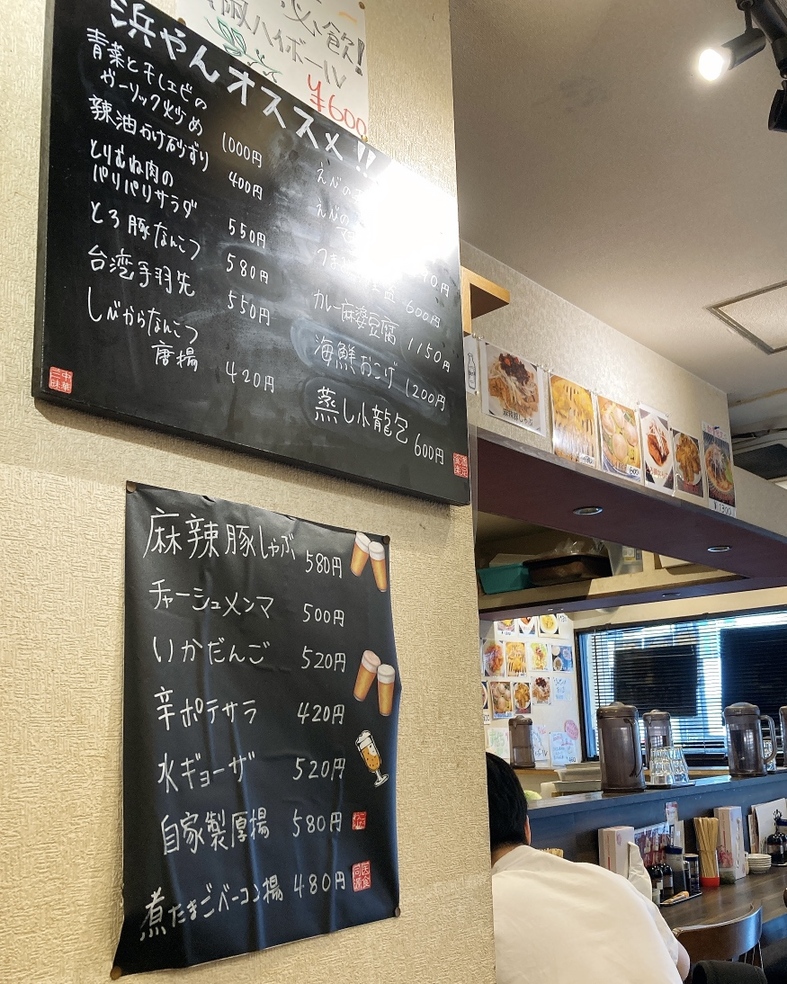 飲!
ハイボール
¥600
浜やんオススメ!!
青菜と干しエビの
ガーリック炒め 1000円
辣油かけ砂ずり 400円
とりむね肉の
パリパリサラダ 550円
とろ豚なんこつ 580円
台湾手羽先 550円
しびからなんこつ
唐揚 420円
えびの
えびの
600円
カレー麻婆豆腐 1150円
海鮮おこげ 1200円
蒸し小龍包 600円
中華
三昧
麻辣豚しゃぶ 580円
チャーシュメンマ 500円
いかだんご 520円
辛ポテサラ 420円
水ギョーザ 520円
自家製厚揚 580円
煮たまごベーコン揚 480円
医食
同源